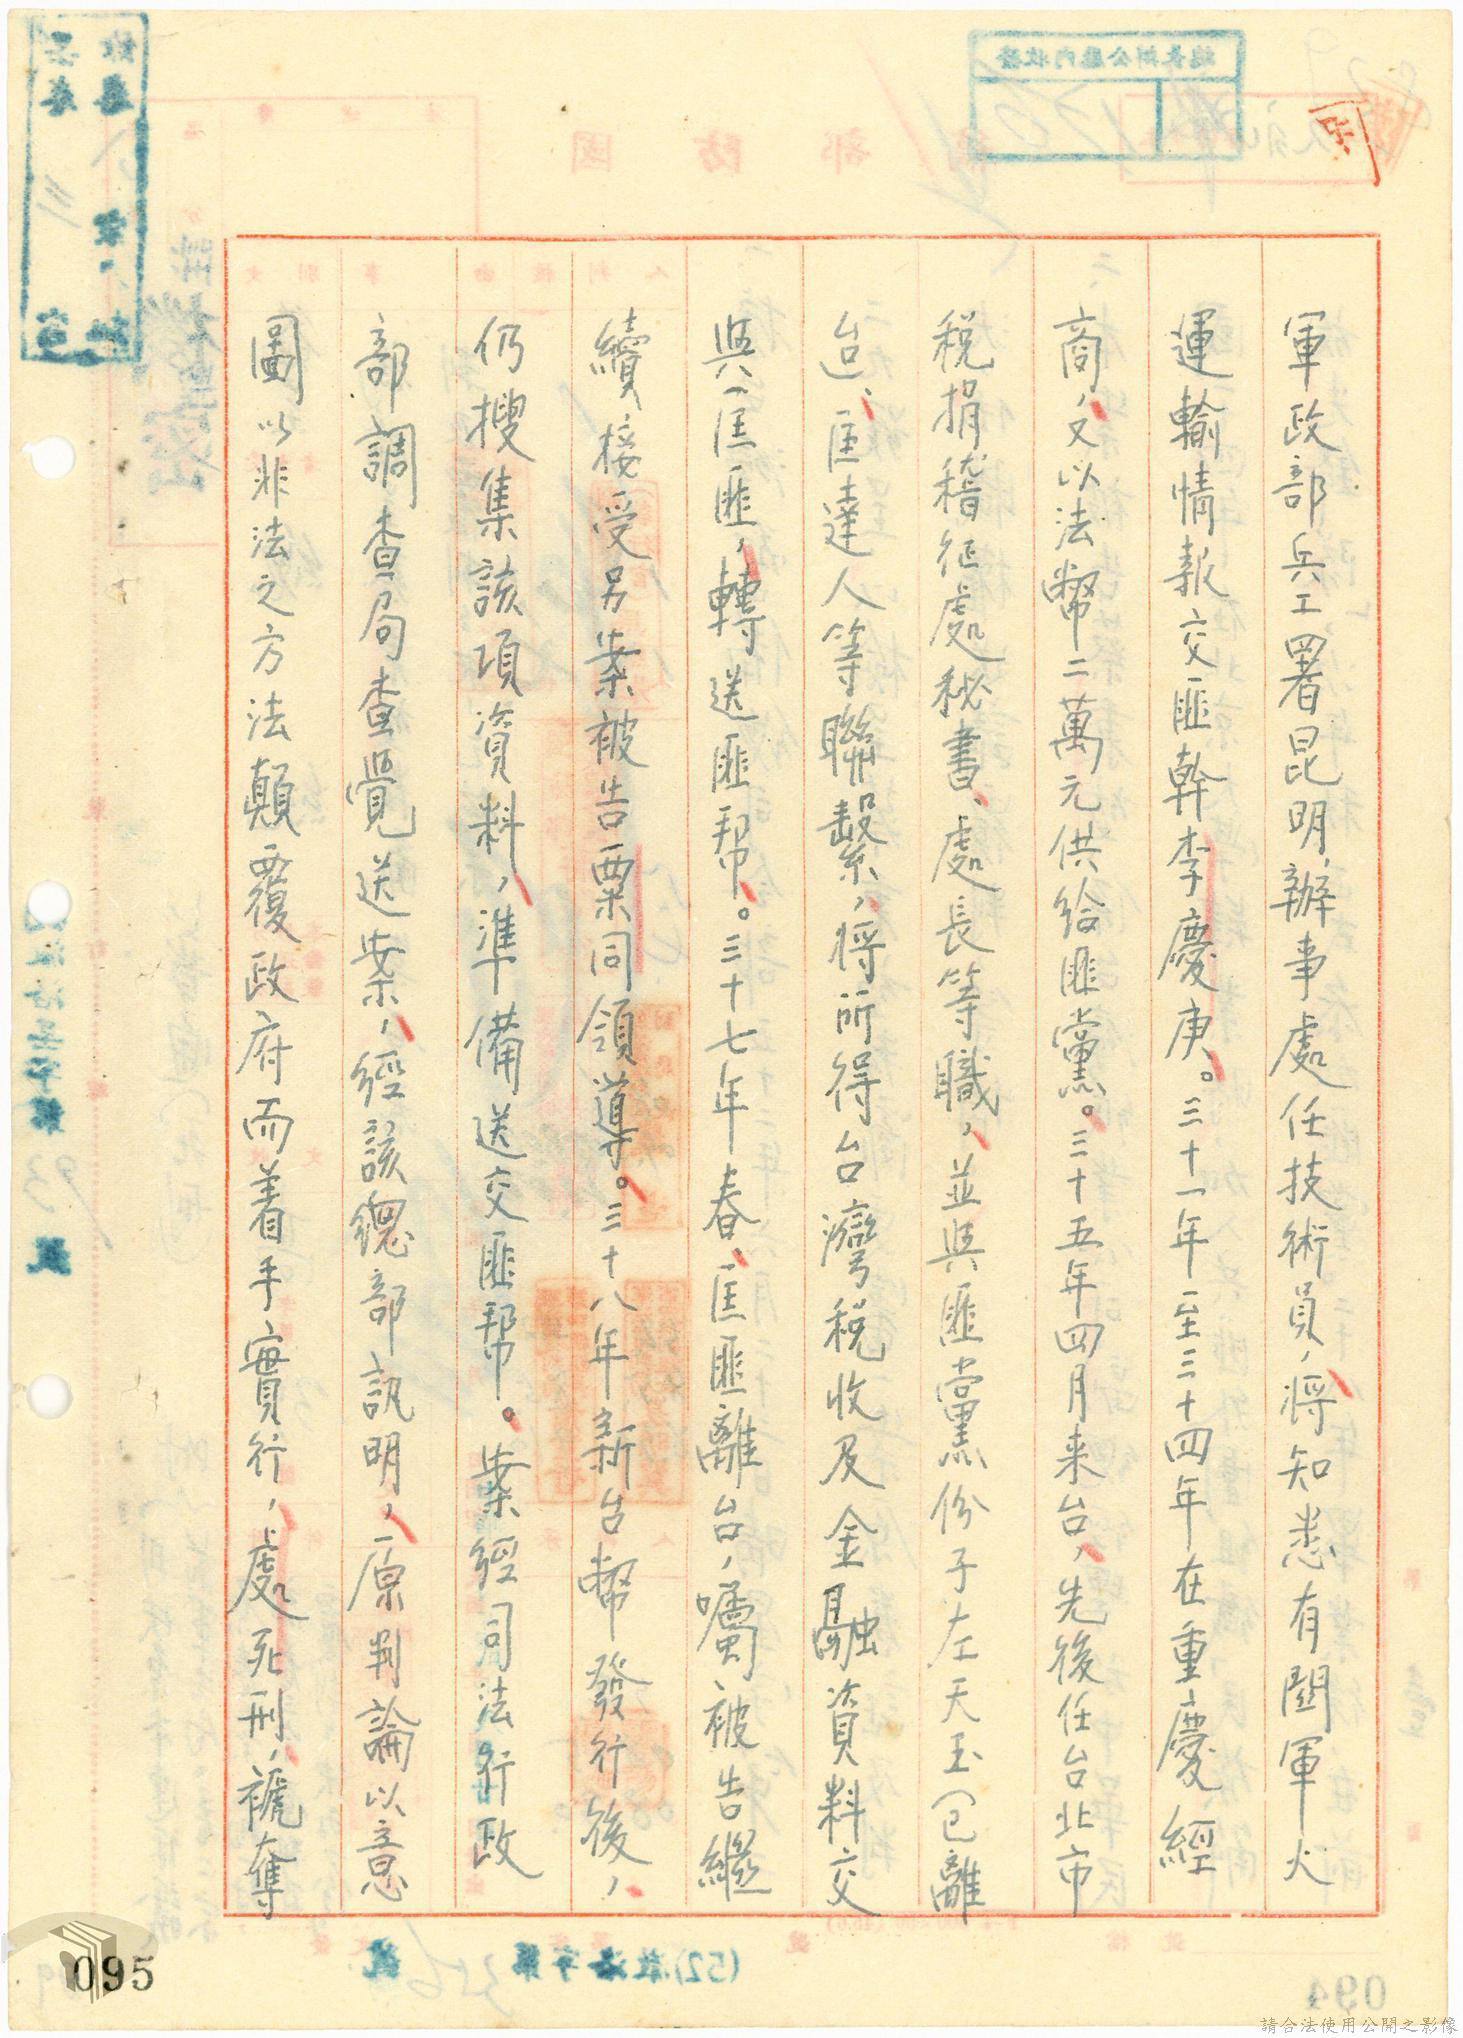 軍政部兵工署昆明辦事處任技術員，將知悉有關軍火
運輸情報交匪幹李慶庚。三十一年至三十四年在重慶經
商，又以法幣二萬元供給匪黨。三十五年四月来台，先後任台北市
稅捐稽征處秘書、處長等職，並與匪黨份子左天玉（已離
台、匡達人等聯繫，將所得台灣稅收及金融資料交
與匡匪，轉送匪幫。三十七年春、匡匪離台，囑被告繼
續接受另案被告粟同領導。三十八年新台幣發行後，
仍搜集該項資料，準備送交匪幫。案經司法行政
部調查局查覺送案，經該總部訊明，原判論以意
圖以非法之方法顛覆政府而着手實行，處死刑，褫奪
095
請合法使用公開之影像